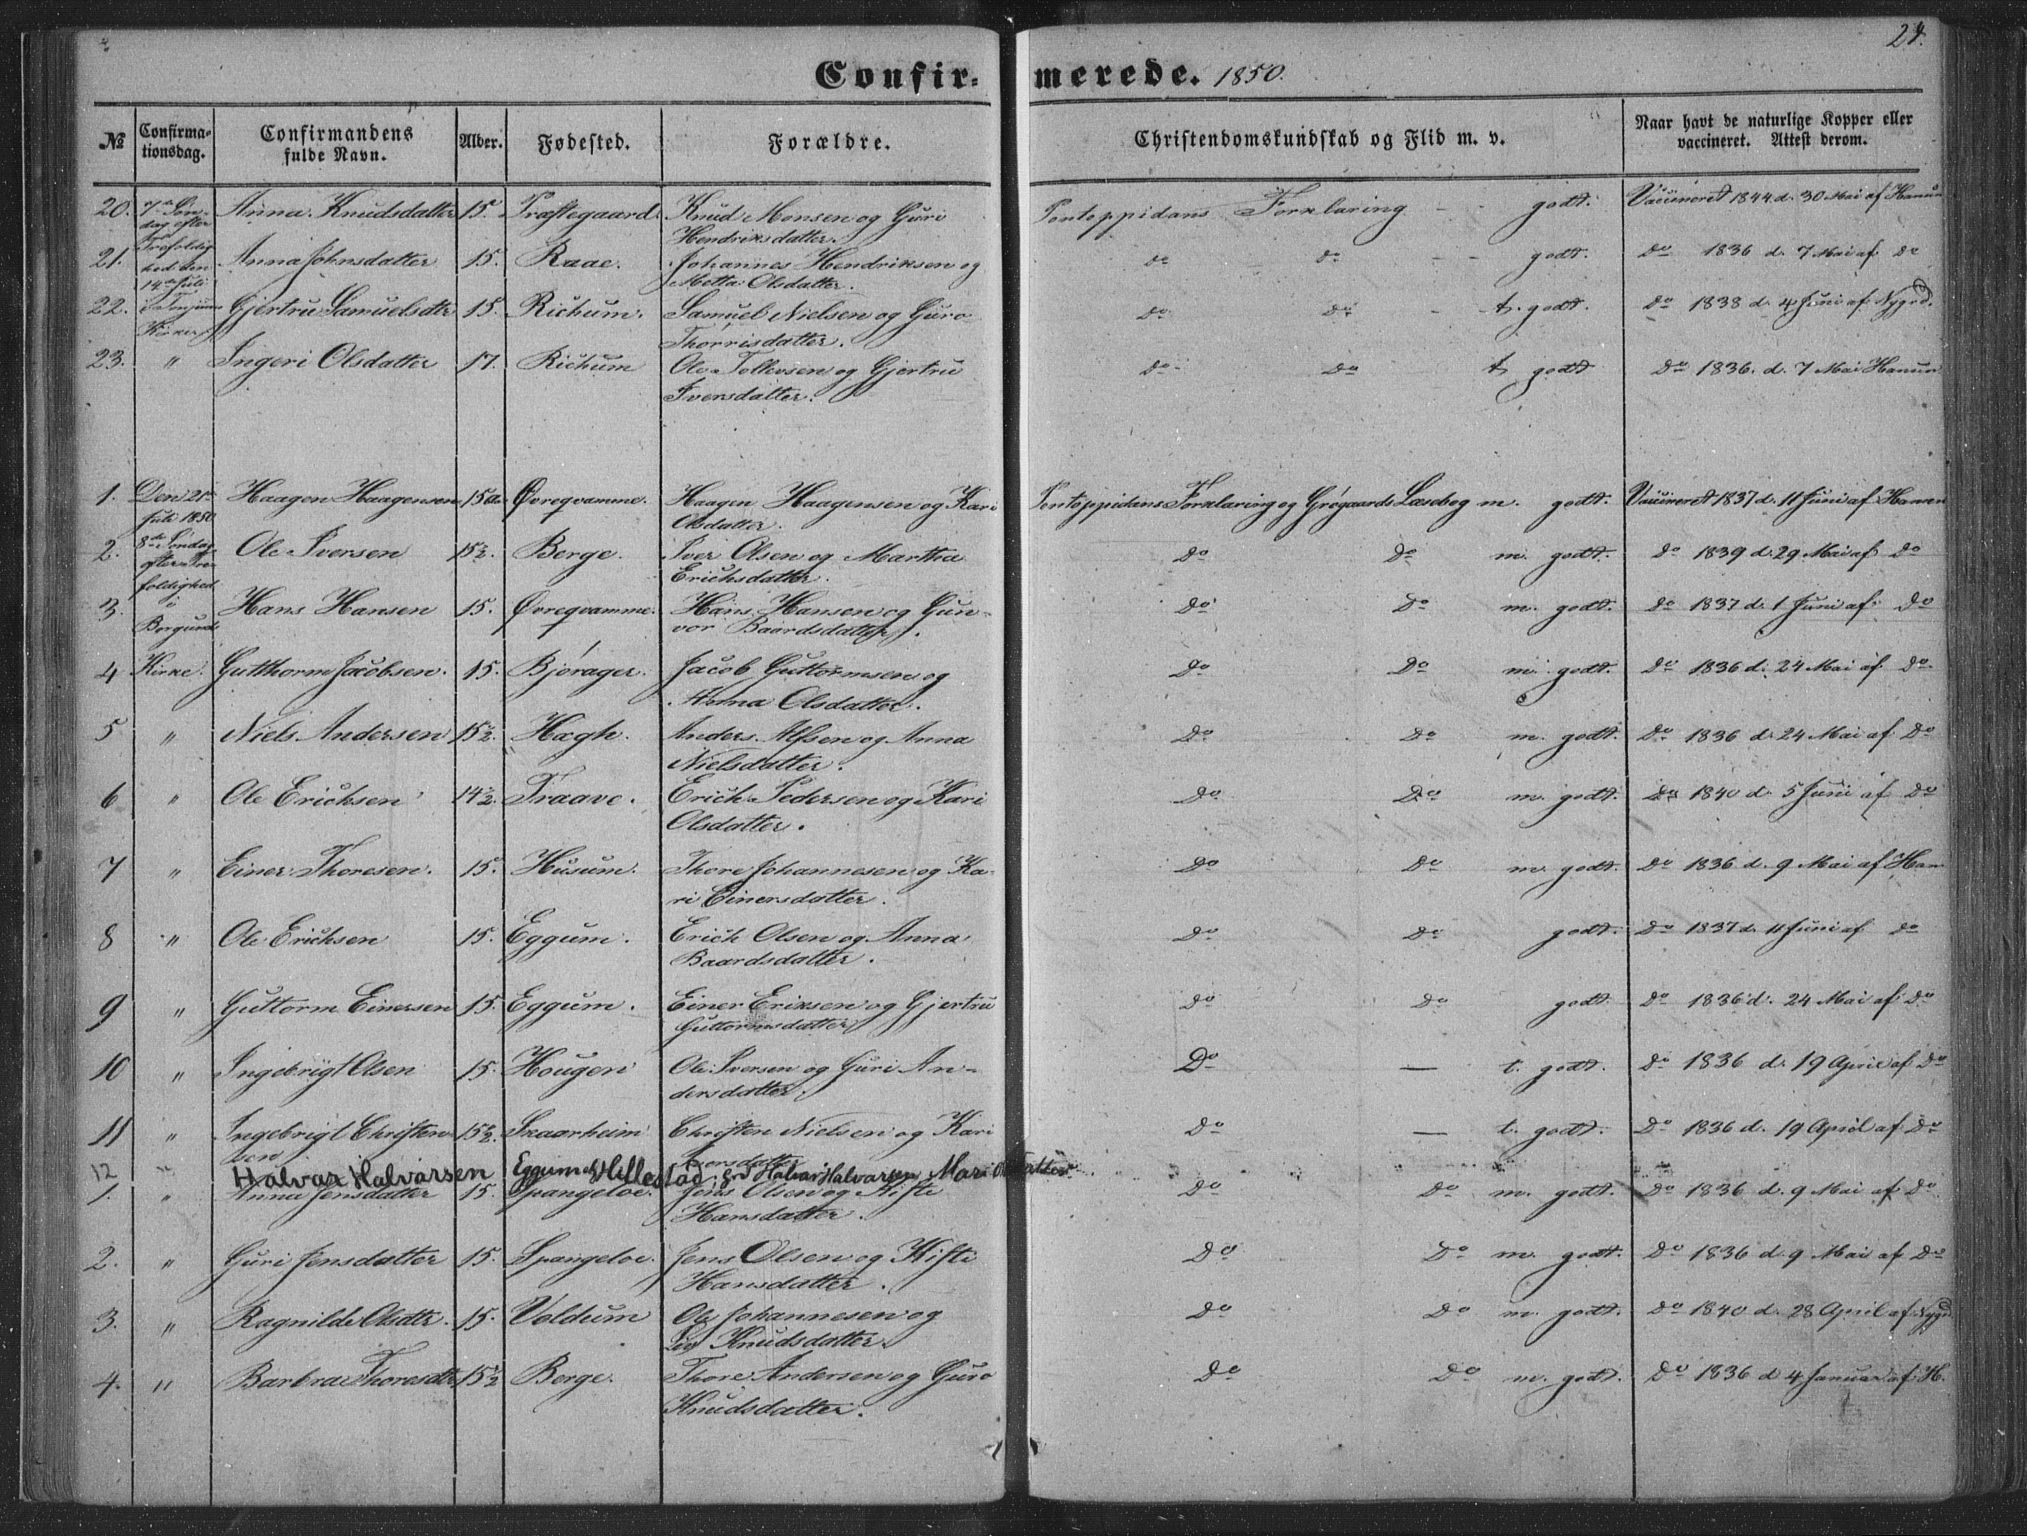 24.
Confirmerede. 1850.
№ Confirmationsdag. Confirmandens fulde Navn. Alder. Fødested. Forældre. Christendomskundskab og Flid m. v. Naar havt de naturlige Kopper eller vaccineret. Attest derom.
20. 7de Søn- Anna Knudsdatter 15. Præstegaard. Knud Monsen og Guri Pontoppidans Forklaring - - godt. Vaccineret 1844 d. 30 Mai af Hanun
dag efter Hendriksdatter.
21. Trefoldig Anna Johnsdatter 15. Raae. Johannes Hendriksen og do do - - godt. do 1836 d. 7 Mai af do
hed den Metta Olsdatter.
14de Juli
22. i Tonjum Gjertru Samuelsdtr 15. Richum. Samuel Nielsen og Guro do do - t. godt. do 1838 d. 4 Juni af Nygrd.
Kirke Thorrisdatter.
23. " Ingeri Olsdatter 17. Richum Ole Tollevsen og Gjertru do do t godt do 1836. d. 7 Mai Hanun
Iversdatter.
1. Den 21de Haagen Haagensen 15 Øvreqvamme. Haagen Haagensen og Kari Pontoppidans Forklaring og Grøgaards Læsebog m. godt. Vaccineret 1837 d. 11 Juni af Hanun
Juli 1850 Olsdatter.
2. 8de Søndag Ole Iversen 15½. Berge. Iver Olsen og Marttra Do Do m. godt. do 1839 d. 29 Mai af do
efter Tre- Erichsdatter.
foldighed
3. i Hans Hansen 15. Øvreqvamme. Hans Hansen og Gun- Do Do m. godt. do 1837 d. 1 Juni af Do
Borgund vor Baardsdatter.
4 Kirke. Gutthorm Jacobsen. 15. Bjørager. Jacob Guttormsen og Do Do m. godt. Do 1836 d. 24 Mai af Do
Anna Olsdatter.
5 " Niels Andersen 15½. Hægh. Anders Alfsen og Anna Do Do m. godt. Do 1836 d. 24 Mai af Do
Nielsdatter.
6 " Ole Erichsen 14½. Traave. Erich Pedersen og Kari Do Do m. godt. Do 1840 d. 5 Juni af Do
Olsdatter.
7 " Einer Thoresen. 15. Husum. Thore Johannesen og Ka- Do Do m. godt. Do 1836 d. 9 Mai af Han
ri Einersdatter.
8 " Ole Erichsen 15. Eggum. Erich Olsen og Anna Do Do godt. Do 1837 d. 11 Juni af do
Baardsdatter.
9 " Guttorm Einersen 15. Eggum. Einer Eriksen og Gjertru Do Do godt. Do 1836 d. 24 Mai af Do
Guttormsdatter
10 " Ingebrigt Olsen 15. Hougen Ole Iversen og Guri An- Do — t. godt. Do 1836 d. 19 April af Do
dersdatter.
11 " Ingebrigt Christen 15½. Skaarheim Christen Nielsen og Kari Do — t. godt. Do 1836 d. 19 April af Do
sen Iversdatter
12 " Halvar Halvarsen Eggum Hillestad; Halvar Halvarsen, Mari
1. " Anna Jensdatter 15. Spangeloe. Jens Olsen og Kifti Do Do m. godt. Do 1836 d. 9 Mai af Do
Hansdatter.
2. " Guri Jensdatter 15. Spangeloe. Jens Olsen og Kifti Do Do m. godt. Do 1836 d. 9 Mai af Do
Hansdatter.
3. " Ragnilde Olsdtr. 15. Voldum Ole Johannesen og Do Do m. godt. Do 1840 d. 28 April af Nygd
Liv Knudsdatter.
4. " Barbra Thoresdtr 15½ Berge. Thore Andersen og Guro Do Do m. godt. Do 1836 d 4 Januar af H.
Knudsdatter.